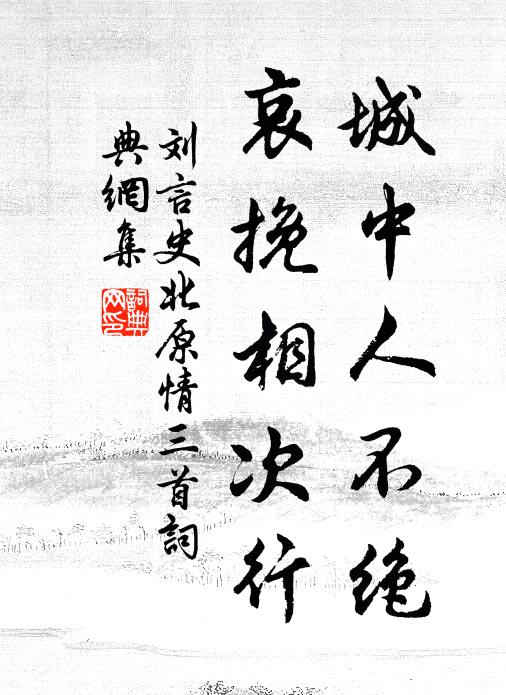 城中人不绝
哀挽相次行
刘言史北原情三首詞
典網集
詞典
网印